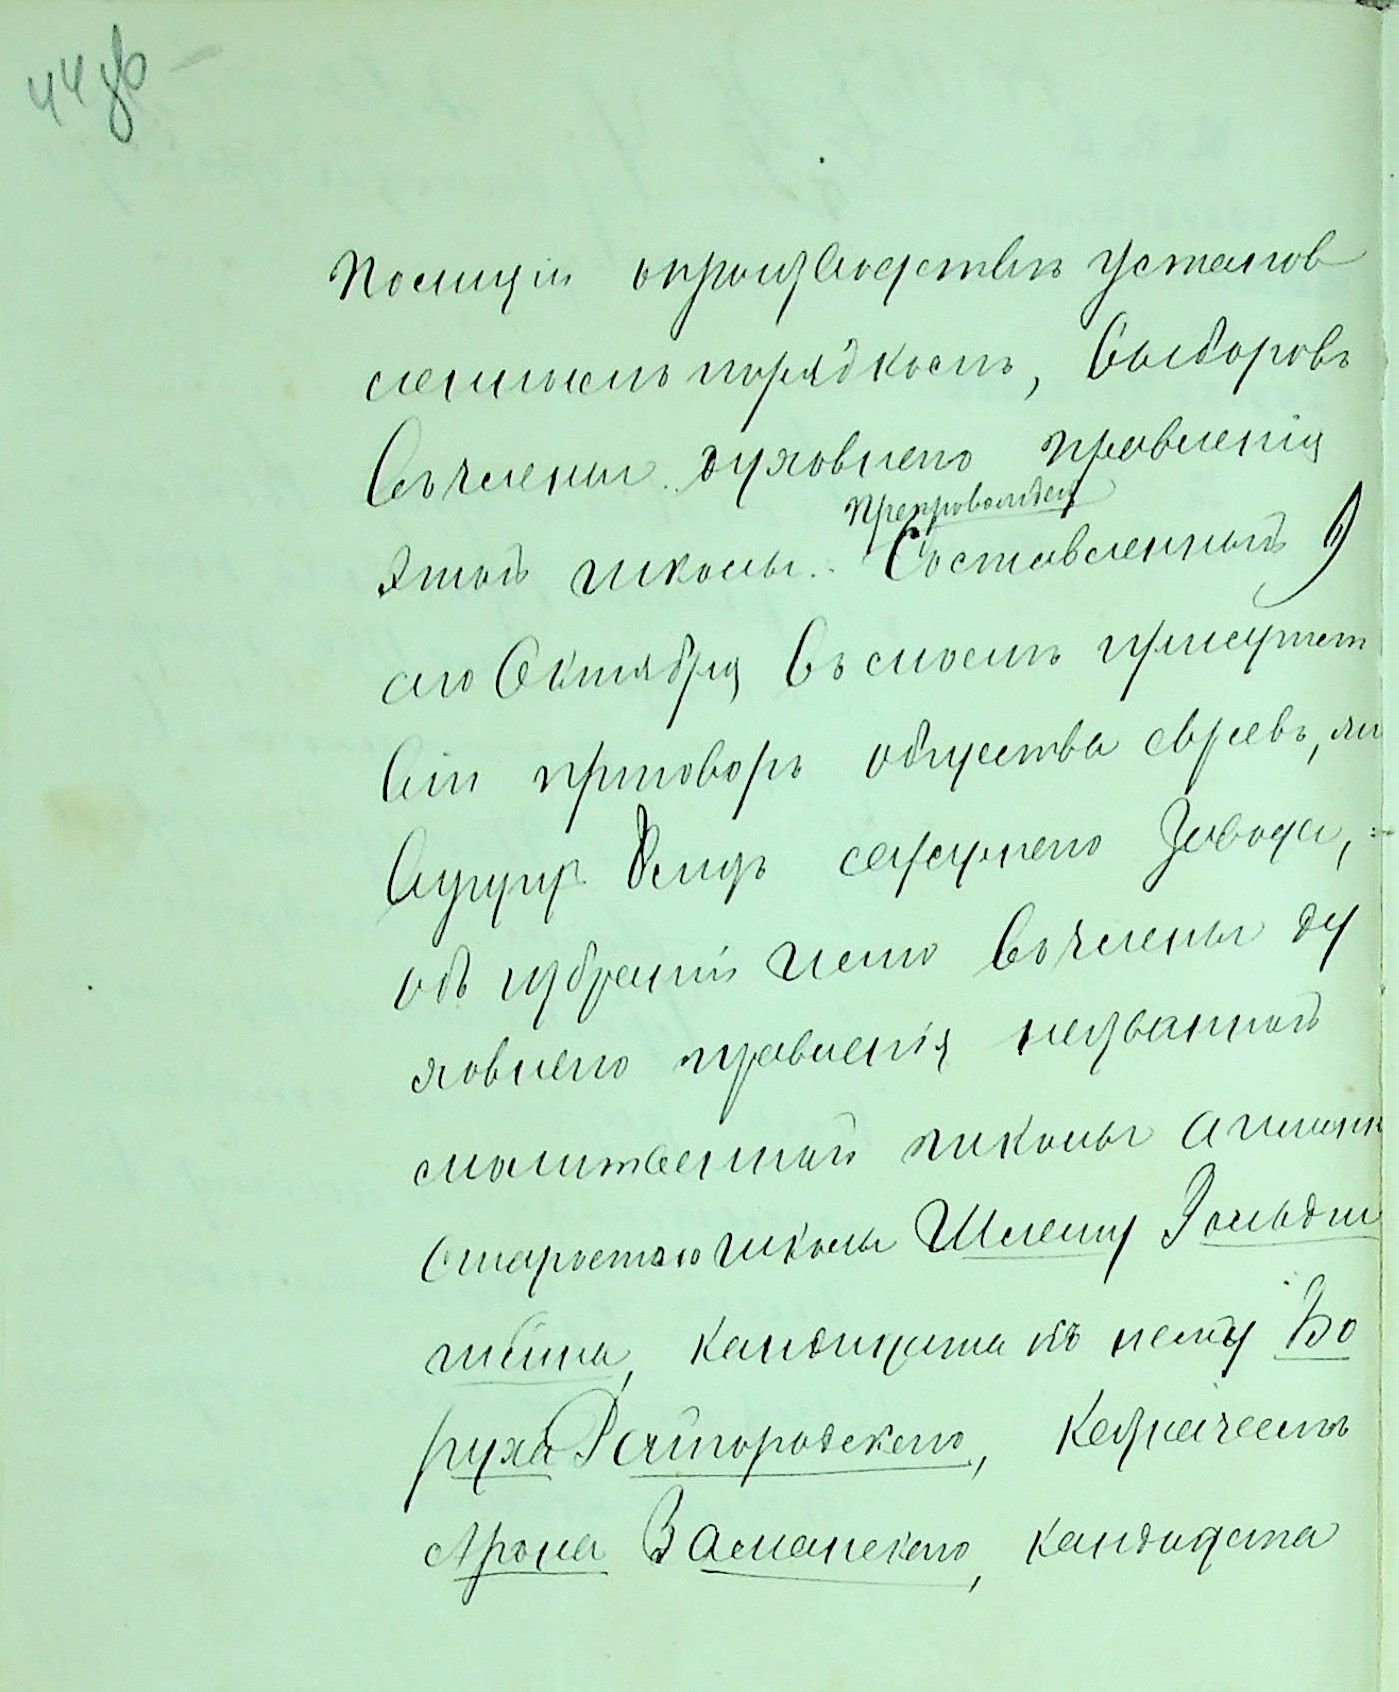 44 об
Полиціи о производствѣ установ
леннымъ порядкомъ, выборовъ
въ члены духовнаго правленія
препровождая
этой школы. Составленный 9
сего Октября въ моемъ присутст
віи приговоръ общества евреевъ, жи
вущихъ сахарнаго завода,
объ избраніи ими въ члены ду
ховнаго правленія названной
молитвенной школы а именно
Старостою школы Шлему Гольдш
тейна, кандидата къ нему Бо
руха Райгородскаго, Казначеемъ
Арона Заманскаго, кандидата